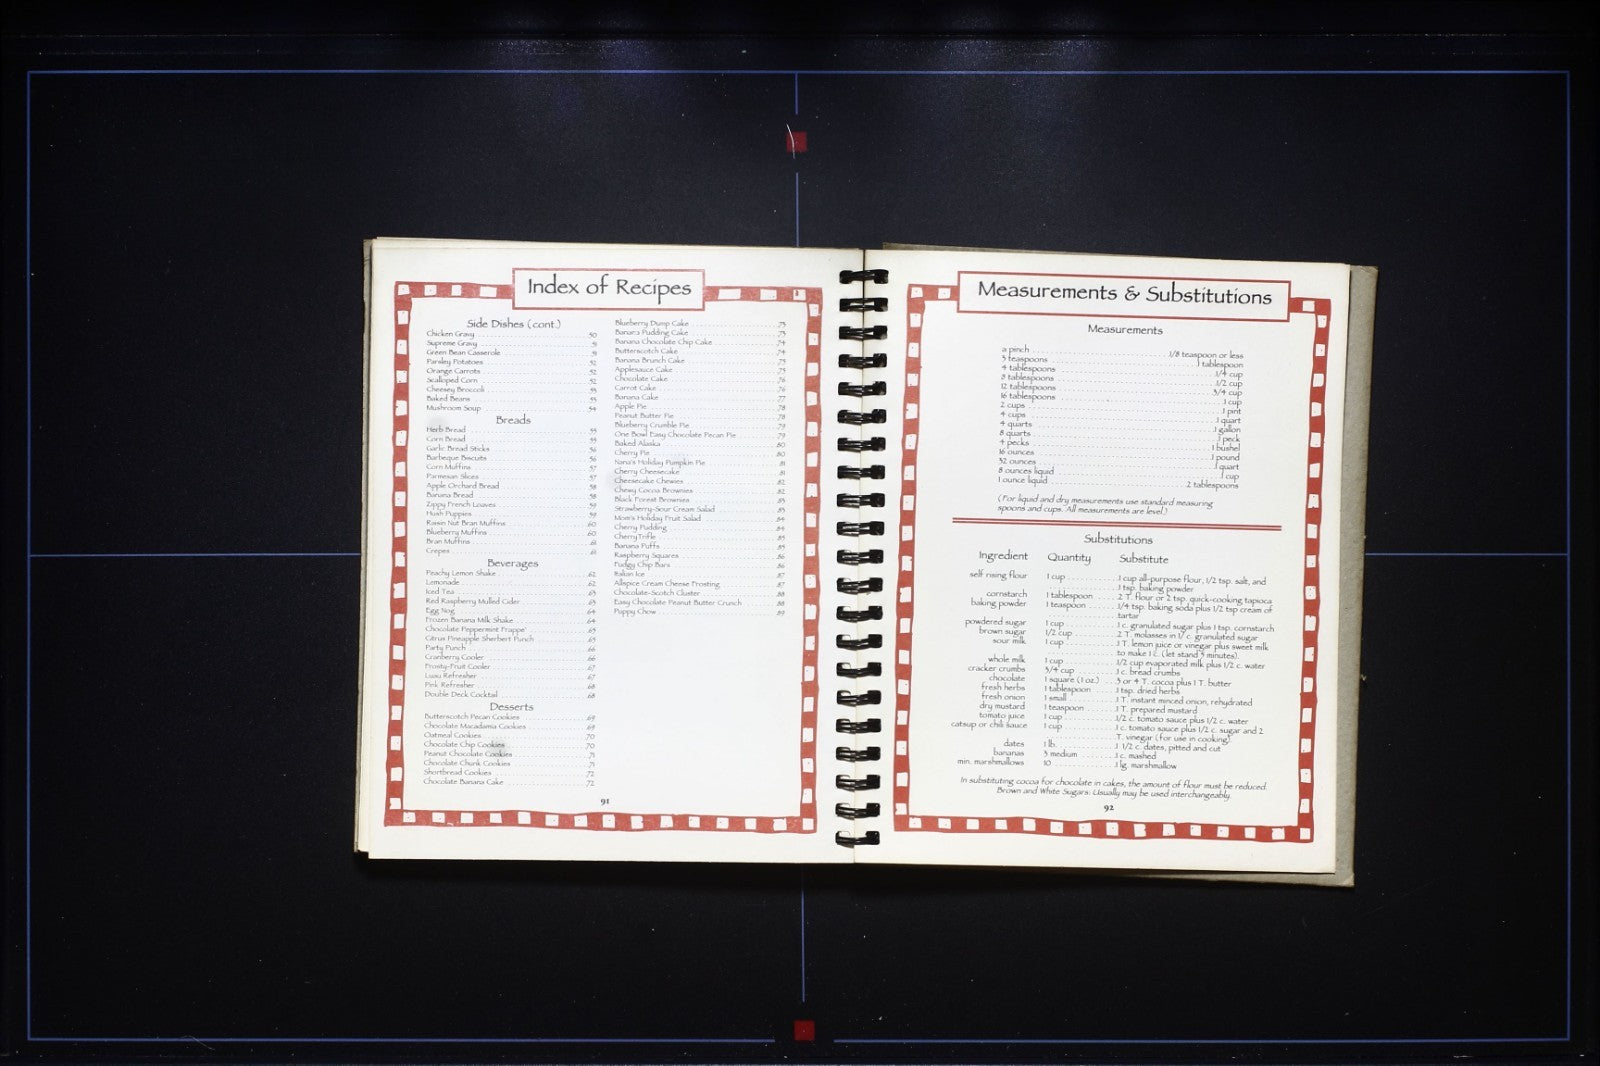 Index of Recipes
Side Dishes (cont.)
Chicken Gravy 50
Supreme Gravy 51
Green Bean Casserole 51
Parsley Potatoes 52
Orange Carrots 52
Scalloped Corn 52
Cheesey Broccoli 53
Baked Beans 53
Mushroom Soup 54
Breads
Herb Bread 55
Corn Bread 55
Garlic Bread Sticks 56
Barbeque Biscuits 56
Corn Muffins 57
Parmesan Slices 57
Apple Orchard Bread 58
Banana Bread 58
Zippy French Loaves 59
Hush Puppies 59
Raisin Nut Bran Muffins 60
Blueberry Muffins 60
Bran Muffins 61
Crepes 61
Beverages
Peachy Lemon Shake 62
Lemonade 62
Iced Tea 63
Red Raspberry Mulled Cider 63
Egg Nog 64
Frozen Banana Milk Shake 64
Chocolate Peppermint Frappe' 65
Citrus Pineapple Sherbert Punch 65
Party Punch 66
Cranberry Cooler 66
Frosty-Fruit Cooler 67
Luau Refresher 67
Pink Refresher 68
Double Deck Cocktail 68
Desserts
Butterscotch Pecan Cookies 69
Chocolate Macadamia Cookies 69
Oatmeal Cookies 70
Chocolate Chip Cookies 70
Peanut Chocolate Cookies 71
Chocolate Chunk Cookies 71
Shortbread Cookies 72
Chocolate Banana Cake 72
Blueberry Dump Cake 73
Banana Pudding Cake 73
Banana Chocolate Chip Cake 74
Butterscotch Cake 74
Banana Brunch Cake 75
Applesauce Cake 75
Chocolate Cake 76
Carrot Cake 76
Banana Cake 77
Apple Pie 78
Peanut Butter Pie 78
Blueberry Crumble Pie 79
One Bowl Easy Chocolate Pecan Pie 79
Baked Alaska 80
Cherry Pie 80
Nana's Holiday Pumpkin Pie 81
Cherry Cheesecake 81
Cheesecake Chewies 82
Chewy Cocoa Brownies 82
Black Forest Brownies 83
Strawberry-Sour Cream Salad 83
Mom's Holiday Fruit Salad 84
Cherry Pudding 84
Cherry Trifle 85
Banana Puffs 85
Raspberry Squares 86
Fudgy Chip Bars 86
Italian Ice 87
Allspice Cream Cheese Frosting 87
Chocolate-Scotch Cluster 88
Easy Chocolate Peanut Butter Crunch 88
Puppy Chow 89
91
Measurements & Substitutions
Measurements
a pinch 1/8 teaspoon or less
3 teaspoons 1 tablespoon
4 tablespoons 1/4 cup
8 tablespoons 1/2 cup
12 tablespoons 3/4 cup
16 tablespoons 1 cup
2 cups 1 pint
4 cups 1 quart
4 quarts 1 gallon
8 quarts 1 peck
4 pecks 1 bushel
16 ounces 1 pound
32 ounces 1 quart
8 ounces liquid 1 cup
1 ounce liquid 2 tablespoons
(For liquid and dry measurements use standard measuring
spoons and cups. All measurements are level.)
Substitutions
Ingredient Quantity Substitute
self rising flour 1 cup 1 cup all-purpose flour, 1/2 tsp. salt, and
1 tsp. baking powder
cornstarch 1 tablespoon 2 T. flour or 2 tsp. quick-cooking tapioca
baking powder 1 teaspoon 1/4 tsp. baking soda plus 1/2 tsp cream of
tartar
powdered sugar 1 cup 1 c. granulated sugar plus 1 tsp. cornstarch
brown sugar 1/2 cup 2 T. molasses in 1/2 c. granulated sugar
sour milk 1 cup 1 T. lemon juice or vinegar plus sweet milk
to make 1 c. (let stand 5 minutes).
whole milk 1 cup 1/2 cup evaporated milk plus 1/2 c. water
cracker crumbs 3/4 cup 1 c. bread crumbs
chocolate 1 square (1 oz.) 3 or 4 T. cocoa plus 1 T. butter
fresh herbs 1 tablespoon 1 tsp. dried herbs
fresh onion 1 small 1 T. instant minced onion, rehydrated
dry mustard 1 teaspoon 1 T. prepared mustard
tomato juice 1 cup 1/2 c. tomato sauce plus 1/2 c. water
catsup or chili sauce 1 cup 1 c. tomato sauce plus 1/2 c. sugar and 2
T. vinegar (for use in cooking)
dates 1 lb. 1 1/2 c. dates, pitted and cut
bananas 3 medium 1 c. mashed
min. marshmallows 10 1 lg. marshmallow
In substituting cocoa for chocolate in cakes, the amount of flour must be reduced.
Brown and White Sugars: Usually may be used interchangeably.
92